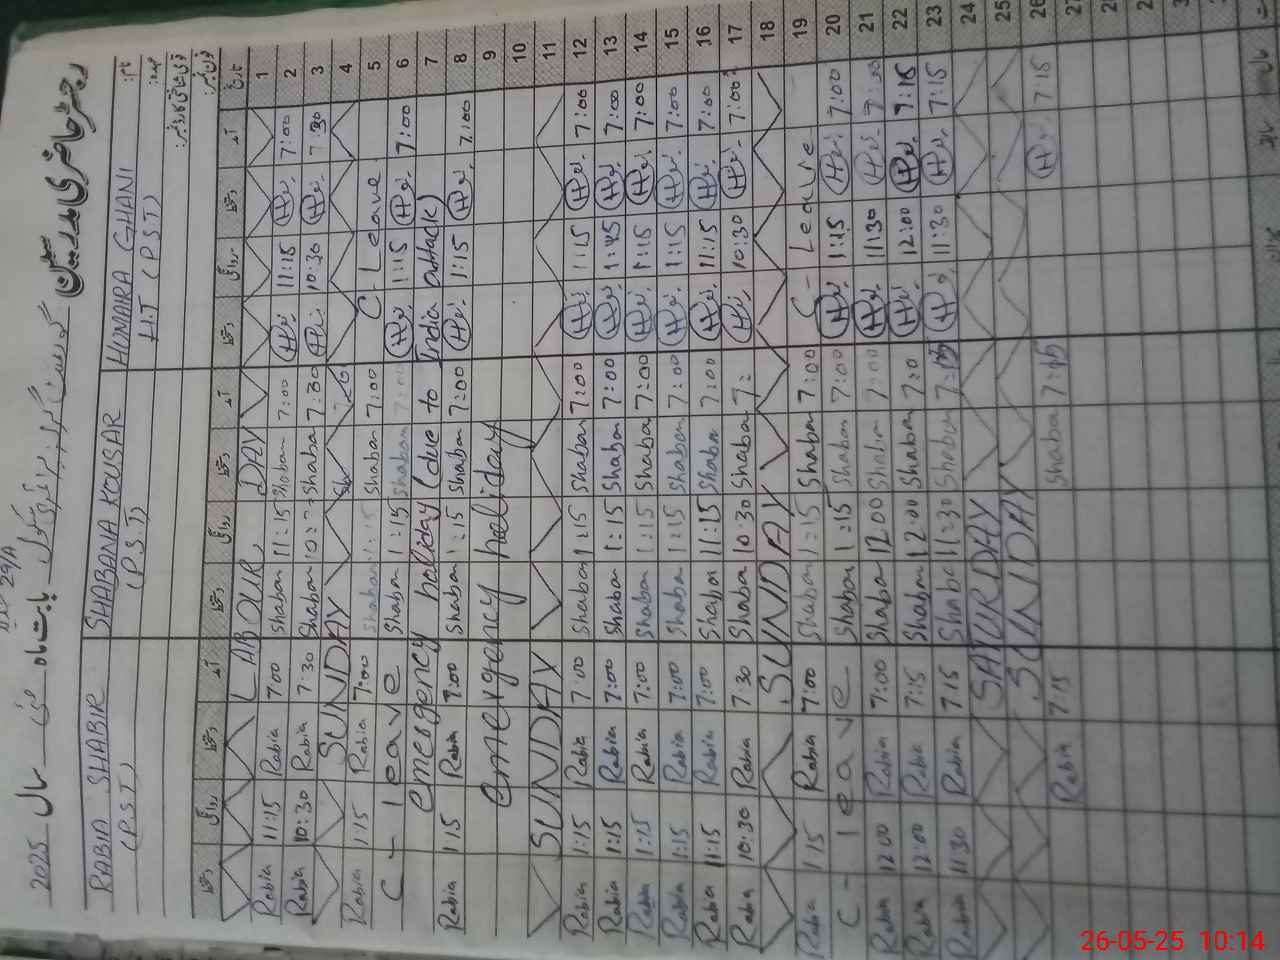 رجسٹر حاضری مدرسین
بابت ماہ مئی سال 2025
HONAIRA GHANI SHABANA KOUSAR RABIA SHABIR
H.T (P.S.T) (P.S.T) (P.S.T)
تاریخ آمد دستخط روانگی دستخط آمد دستخط روانگی دستخط آمد دستخط روانگی دستخط
1 LABOUR DAY
2 7:00 11:15 7:00 Shaban 11:15 Shaban 7:00 Rabia 11:15 Rabia
3 7:30 10:30 7:30 Shaban Shaban 7:30 Rabia 10:30 Rabia
4 SUNDAY
5 C-Leave 7:00 Shaban 1:15 Shaban 7:00 Rabia 1:15 Rabia
6 7:00 1:15 7:00 Shaban 1:15 Shaban C-leave
7 emergency holiday (due to India attack)
8 7:00 1:15 7:00 Shaban 1:15 Shaban 7:00 Rabia 1:15 Rabia
9 emergency holiday
10
11 SUNDAY
12 7:00 1:15 7:00 Shaban 1:15 Shaban 7:00 Rabia 1:15 Rabia
13 7:00 1:45 7:00 Shaban 1:15 Shaban 7:00 Rabia 1:15 Rabia
14 7:00 1:15 7:00 Shaban 1:15 Shaban 7:00 Rabia 1:15 Rabia
15 7:00 1:15 7:00 Shaban 1:15 Shaban 7:00 Rabia 1:15 Rabia
16 7:00 11:15 7:00 Shaban 11:15 Shaban 7:00 Rabia 11:15 Rabia
17 7:00 10:30 7: Shaban 10:30 Shaban 7:30 Rabia 10:30 Rabia
18 SUNDAY
19 C-Leave 7:00 Shaban 1:15 Shaban 7:00 Rabia 1:15 Rabia
20 7:00 1:15 7:00 Shaban 1:15 Shaban C-leave
21 7:00 11:30 7:00 Shaban 12:00 Shaban 7:00 Rabia 12:00 Rabia
22 7:15 12:00 7:0 Shaban 12:00 Shaban 7:15 Rabia 12:00 Rabia
23 7:15 11:30 Shaban 11:30 Shaban 7:15 Rabia 11:30 Rabia
24 SATURDAY
25 SUNDAY
26 7:15 Shaban 7:15 Rabia
27
26-05-25 10:14